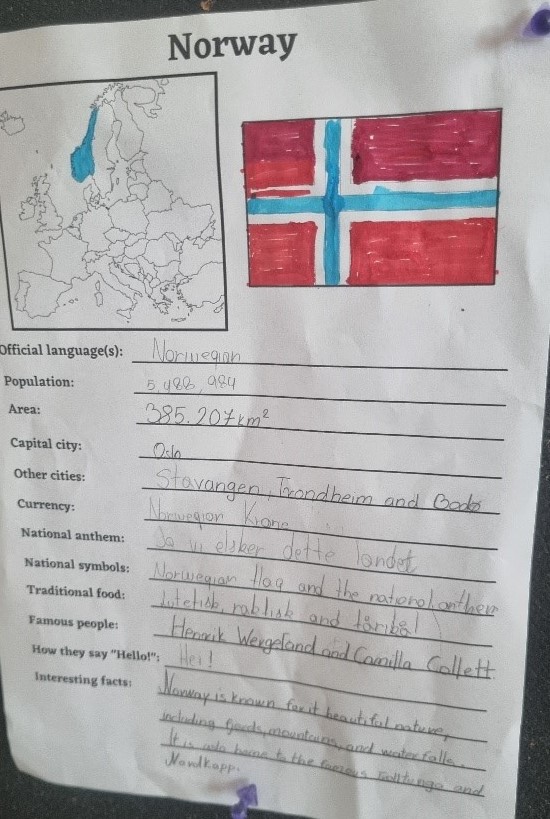 Norway
Official language(s): Norwegian
Population: 5 488 984
Area: 385.207 km²
Capital city: Oslo
Other cities: Stavangen, Trondheim and Bodo
Currency: Norwegian Krone
National anthem: Ja vi elsker dette landet
National symbols: Norwegian flag and the national anthem
Traditional food: lutefisk, and fårikål
Famous people: Henrik Wergeland and Camilla Collett
How they say "Hello!": Hei!
Interesting facts: Norway is known for it beautiful nature,
including fjords, mountains, and waterfalls.
It is also home to the famous and
Nordkapp.